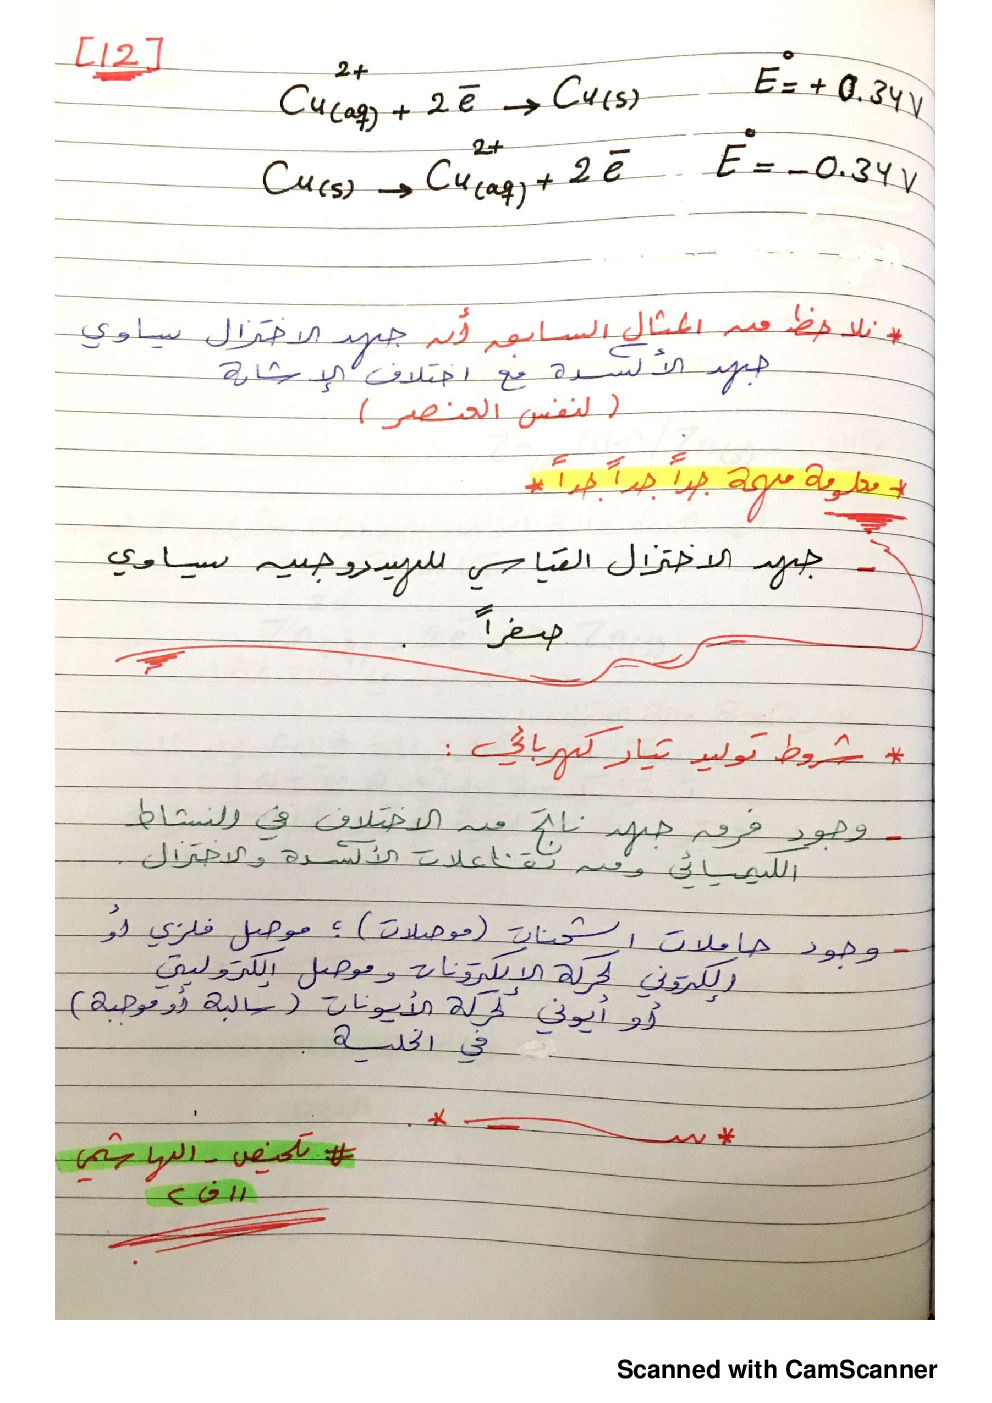 [12]
Cu²⁺(aq) + 2e⁻ → Cu(s) E° = + 0.34V
Cu(s) → Cu²⁺(aq) + 2e⁻ E° = - 0.34V
* نلاحظ من المثال السابق أن جهد الاختزال يساوي
جهد الأكسدة مع اختلاف الإشارة
( لنفس العنصر )
* معلومة مهمة جداً جداً جداً *
- جهد الاختزال القياسي للهيدروجين يساوي
صفراً
* شروط توليد تيار كهربائي :
- وجود فرق جهد ناتج من الاختلاف في النشاط
الكيميائي ومن تفاعلات الأكسدة والاختزال .
- وجود حاملات الشحنات (موصلات) ؛ موصل فلزي أو
إلكتروني لحركة الإلكترونات وموصل إلكتروليتي
أو أيوني لحركة الأيونات ( سالبة أو موجبة )
في الخلية .
# تلخيص - الهاشمي
١١ ف ٢
Scanned with CamScanner